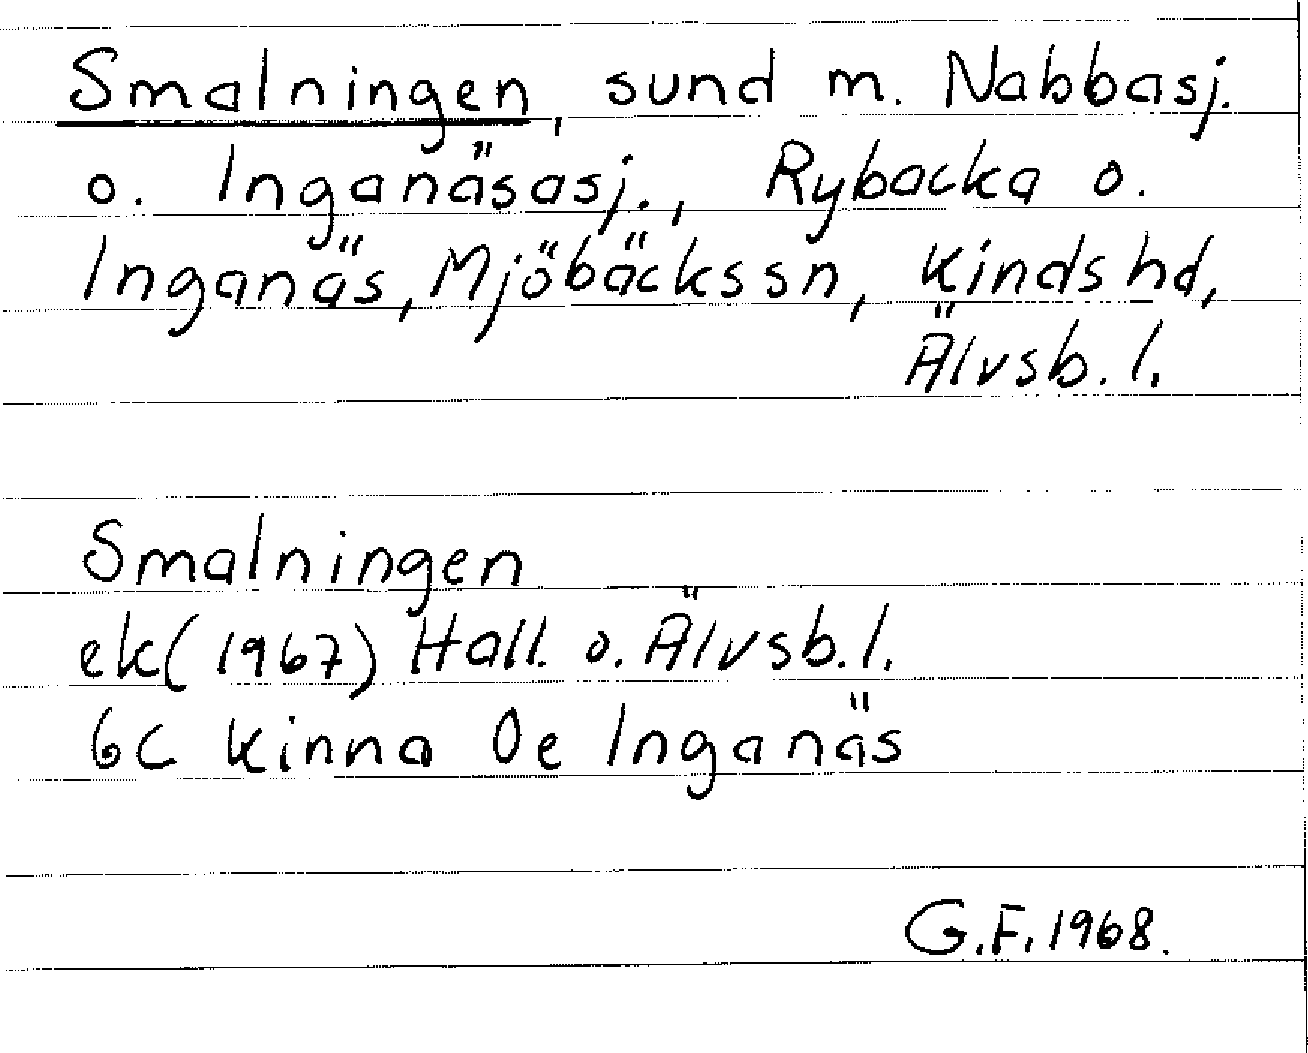 Smalningen, sund m. Nabbasj.
o. Inganäsasj., Rybacka o.
Inganäs, Mjöbäckssn, Kinds hd,
Älvsb. l.
Smalningen
ek(1967) Hall. o. Älvsb. l.
6C Kinna 0e Inganäs
G.F. 1968.